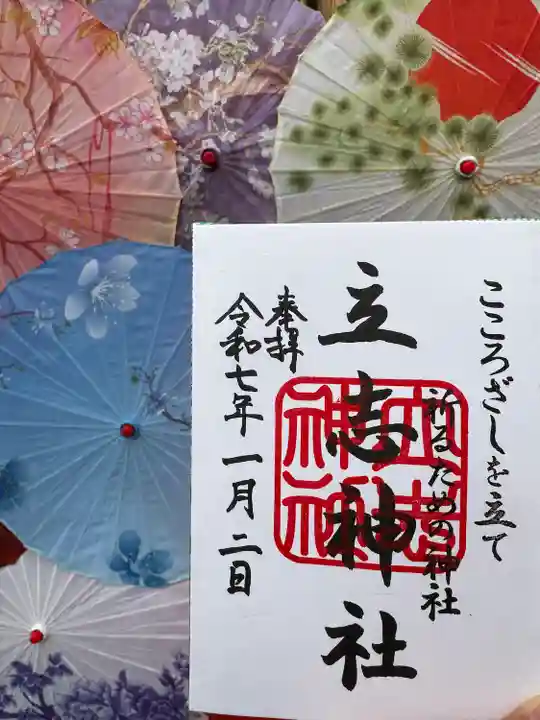 こころざしを立て
祈るための神社
立志神社
立志神社
奉拝
令和七年一月二日